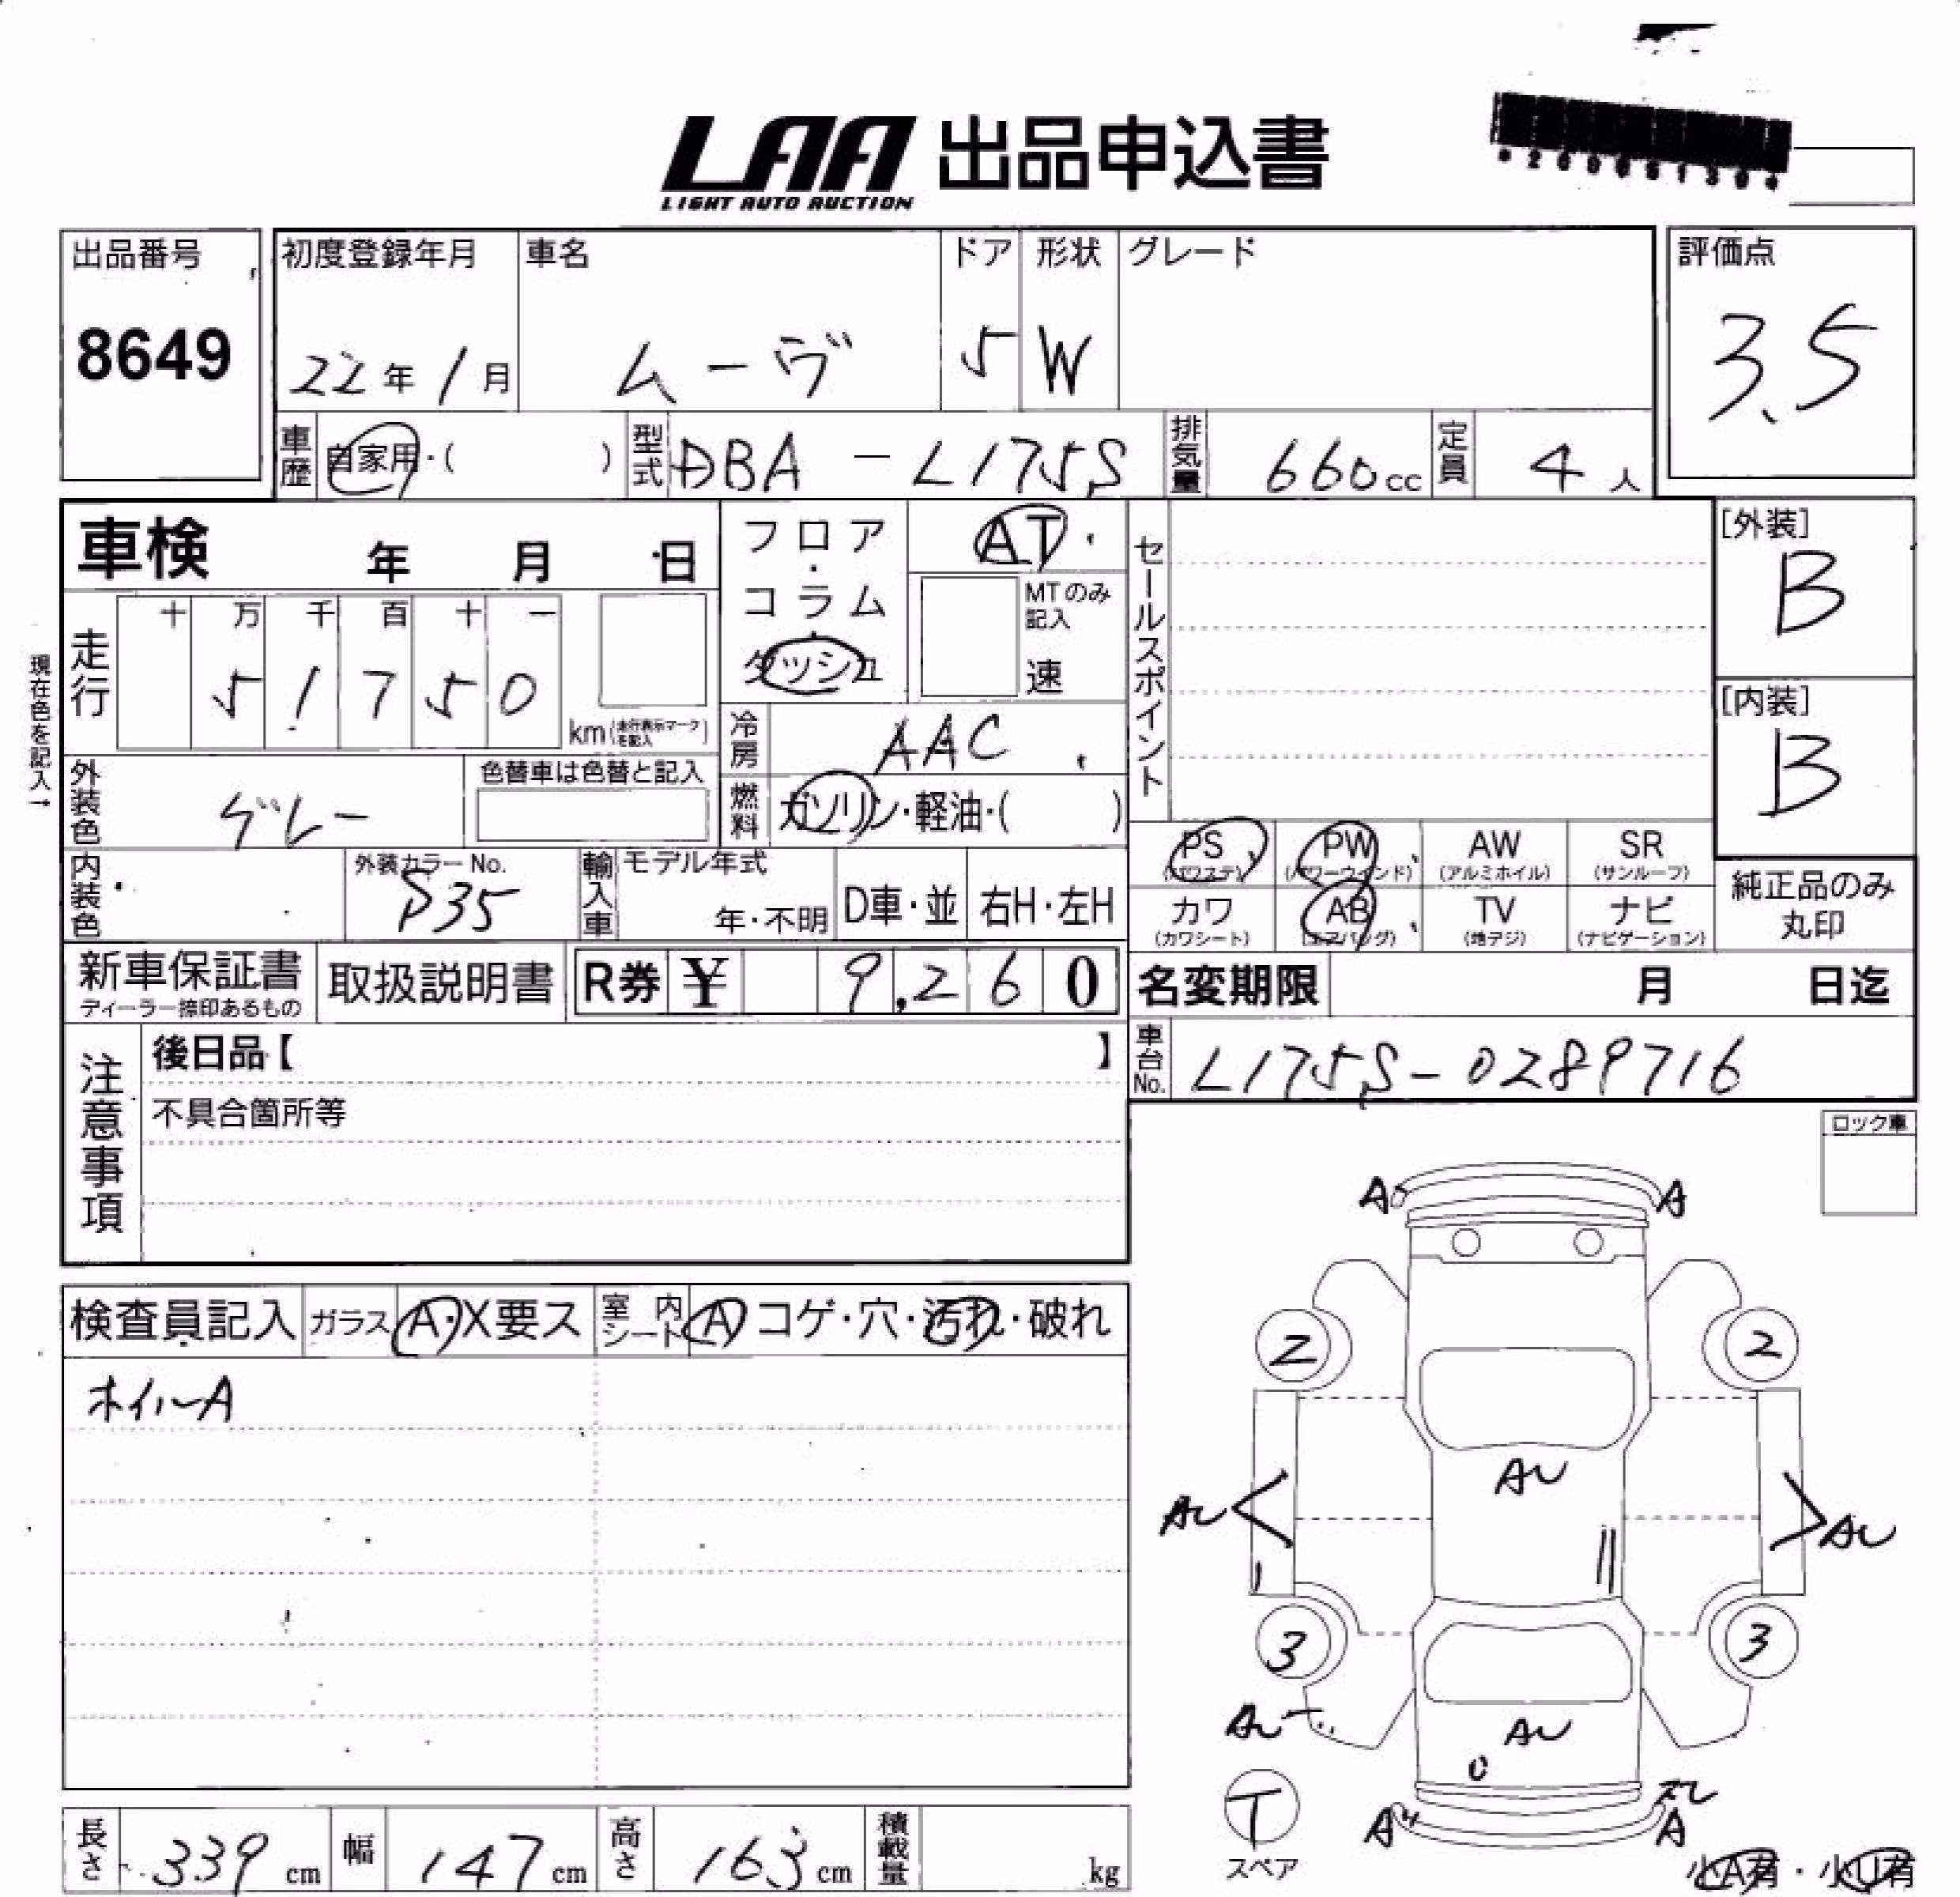 LAA 出品申込書
LIGHT AUTO AUCTION
出品番号
8649
初度登録年月
22年1月
車名
ムーヴ
ドア
5
形状
W
グレード
評価点
3.5
車歴 自家用・( )
型式 DBA-L175S
排気量 660cc
定員 4人
車検 年 月 日
フロア・コラム・ダッシュ
AT
MTのみ記入
速
セールスポイント
[外装]
B
[内装]
B
現在色を記入→
走行
十 万 千 百 十 一
5 1 7 5 0
km(走行表示マークを記入)
冷房 AAC
外装色 グレー
色替車は色替と記入
燃料 ガソリン・軽油・( )
PS (パワステ)
PW (パワーウィンド)
AW (アルミホイル)
SR (サンルーフ)
カワ (カワシート)
AB (エアバッグ)
TV (地デジ)
ナビ (ナビゲーション)
純正品のみ
丸印
内装色
外装カラーNo.
P35
輸入車
モデル年式
年・不明
D車・並
右H・左H
新車保証書
ディーラー捺印あるもの
取扱説明書
R券 ¥ 9,260
名変期限 月 日迄
車台No. L175S-0289716
注意事項
後日品【 】
不具合箇所等
ロック車
検査員記入 ガラス A・X要ス 室内シート A コゲ・穴・汚れ・破れ
ホイルA
A A
2 2
AU
AU AU
3 3
AU
AU
U
ズレ
A A
T
スペア
小A有・小U有
長さ 339cm
幅 147cm
高さ 163cm
積載量 kg